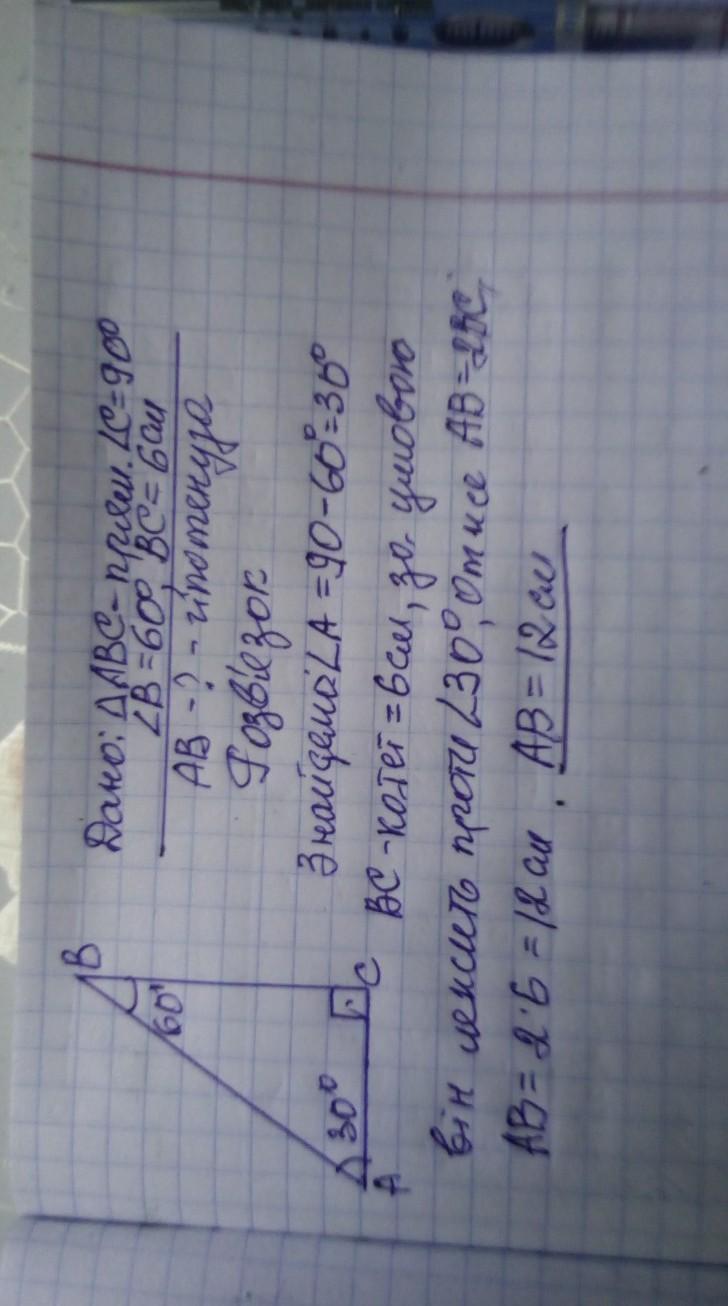 Дано: △ABC - прям. ∠C=90°
∠B=60°, BC=6см
AB - ? - гіпотенуза
Розв'язок
Знайдемо ∠A=90-60°=30°
BC - катет = 6см, за умовою
він лежить проти ∠30°, отже AB=2BC,
AB = 2·6 = 12 см. AB=12 см
B
60°
30°
A
C